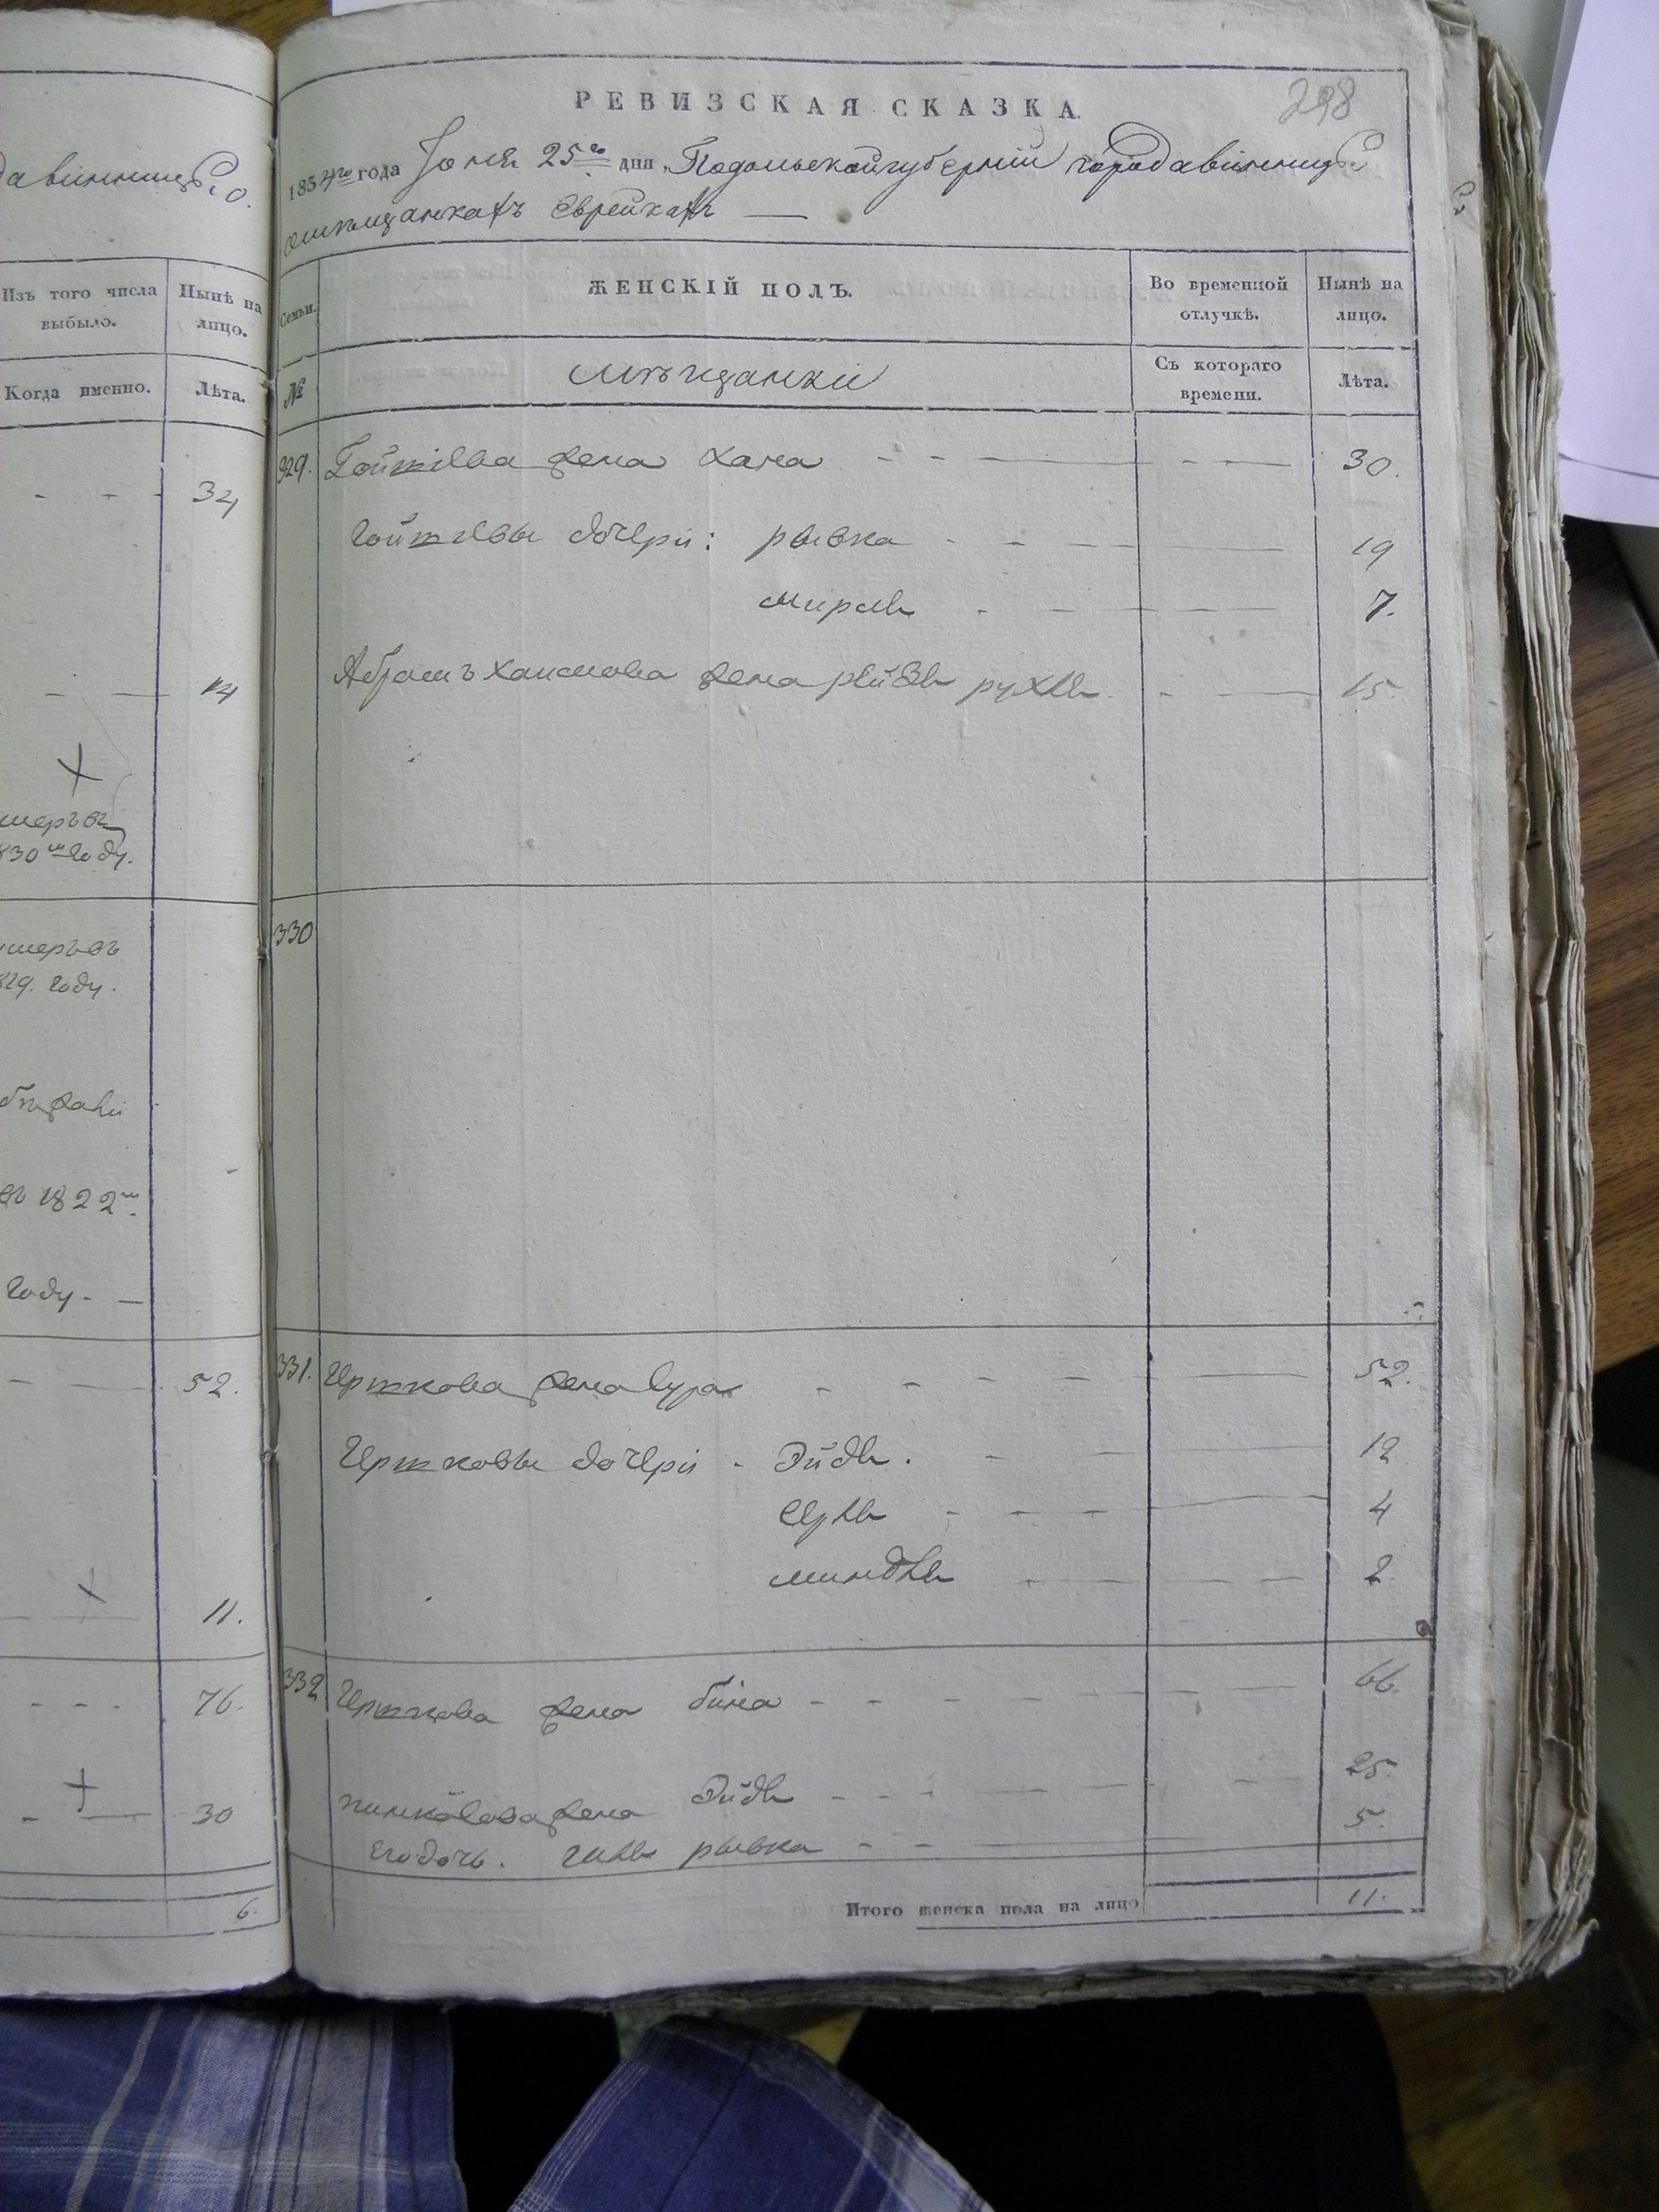 давинницѣ о
Изъ того числа выбыло.
Нынѣ на лицо.
Когда именно.
Лѣта.
34
14
умеръ въ
830 м году.
умеръ въ
году.
въ 1822 м
году.
52.
11.
76.
30
6.
298
РЕВИЗСКАЯ СКАЗКА
1854го года Іюня 25го дня Подольской губерніи города Винницы
о мѣщанкахъ Еврейкахъ
Семьи.
ЖЕНСКІЙ ПОЛЪ.
Во временной отлучкѣ.
Нынѣ на лицо.
№
Мѣщанки
Съ котораго времени.
Лѣта.
329. жена Хана 30.
дочери: рывка 19
мирля 7.
Абрамъ Хаимова жена рейзя рухля 15.
330
331. Гершкова жена Сура 52.
Гершковы дочери Эйдя. 12
Серля 4
миндля 2.
332 Гершкова жена бина 66.
жена Эйдя 25.
его дочь. рывка 5.
Итого женска пола на лицо 11.